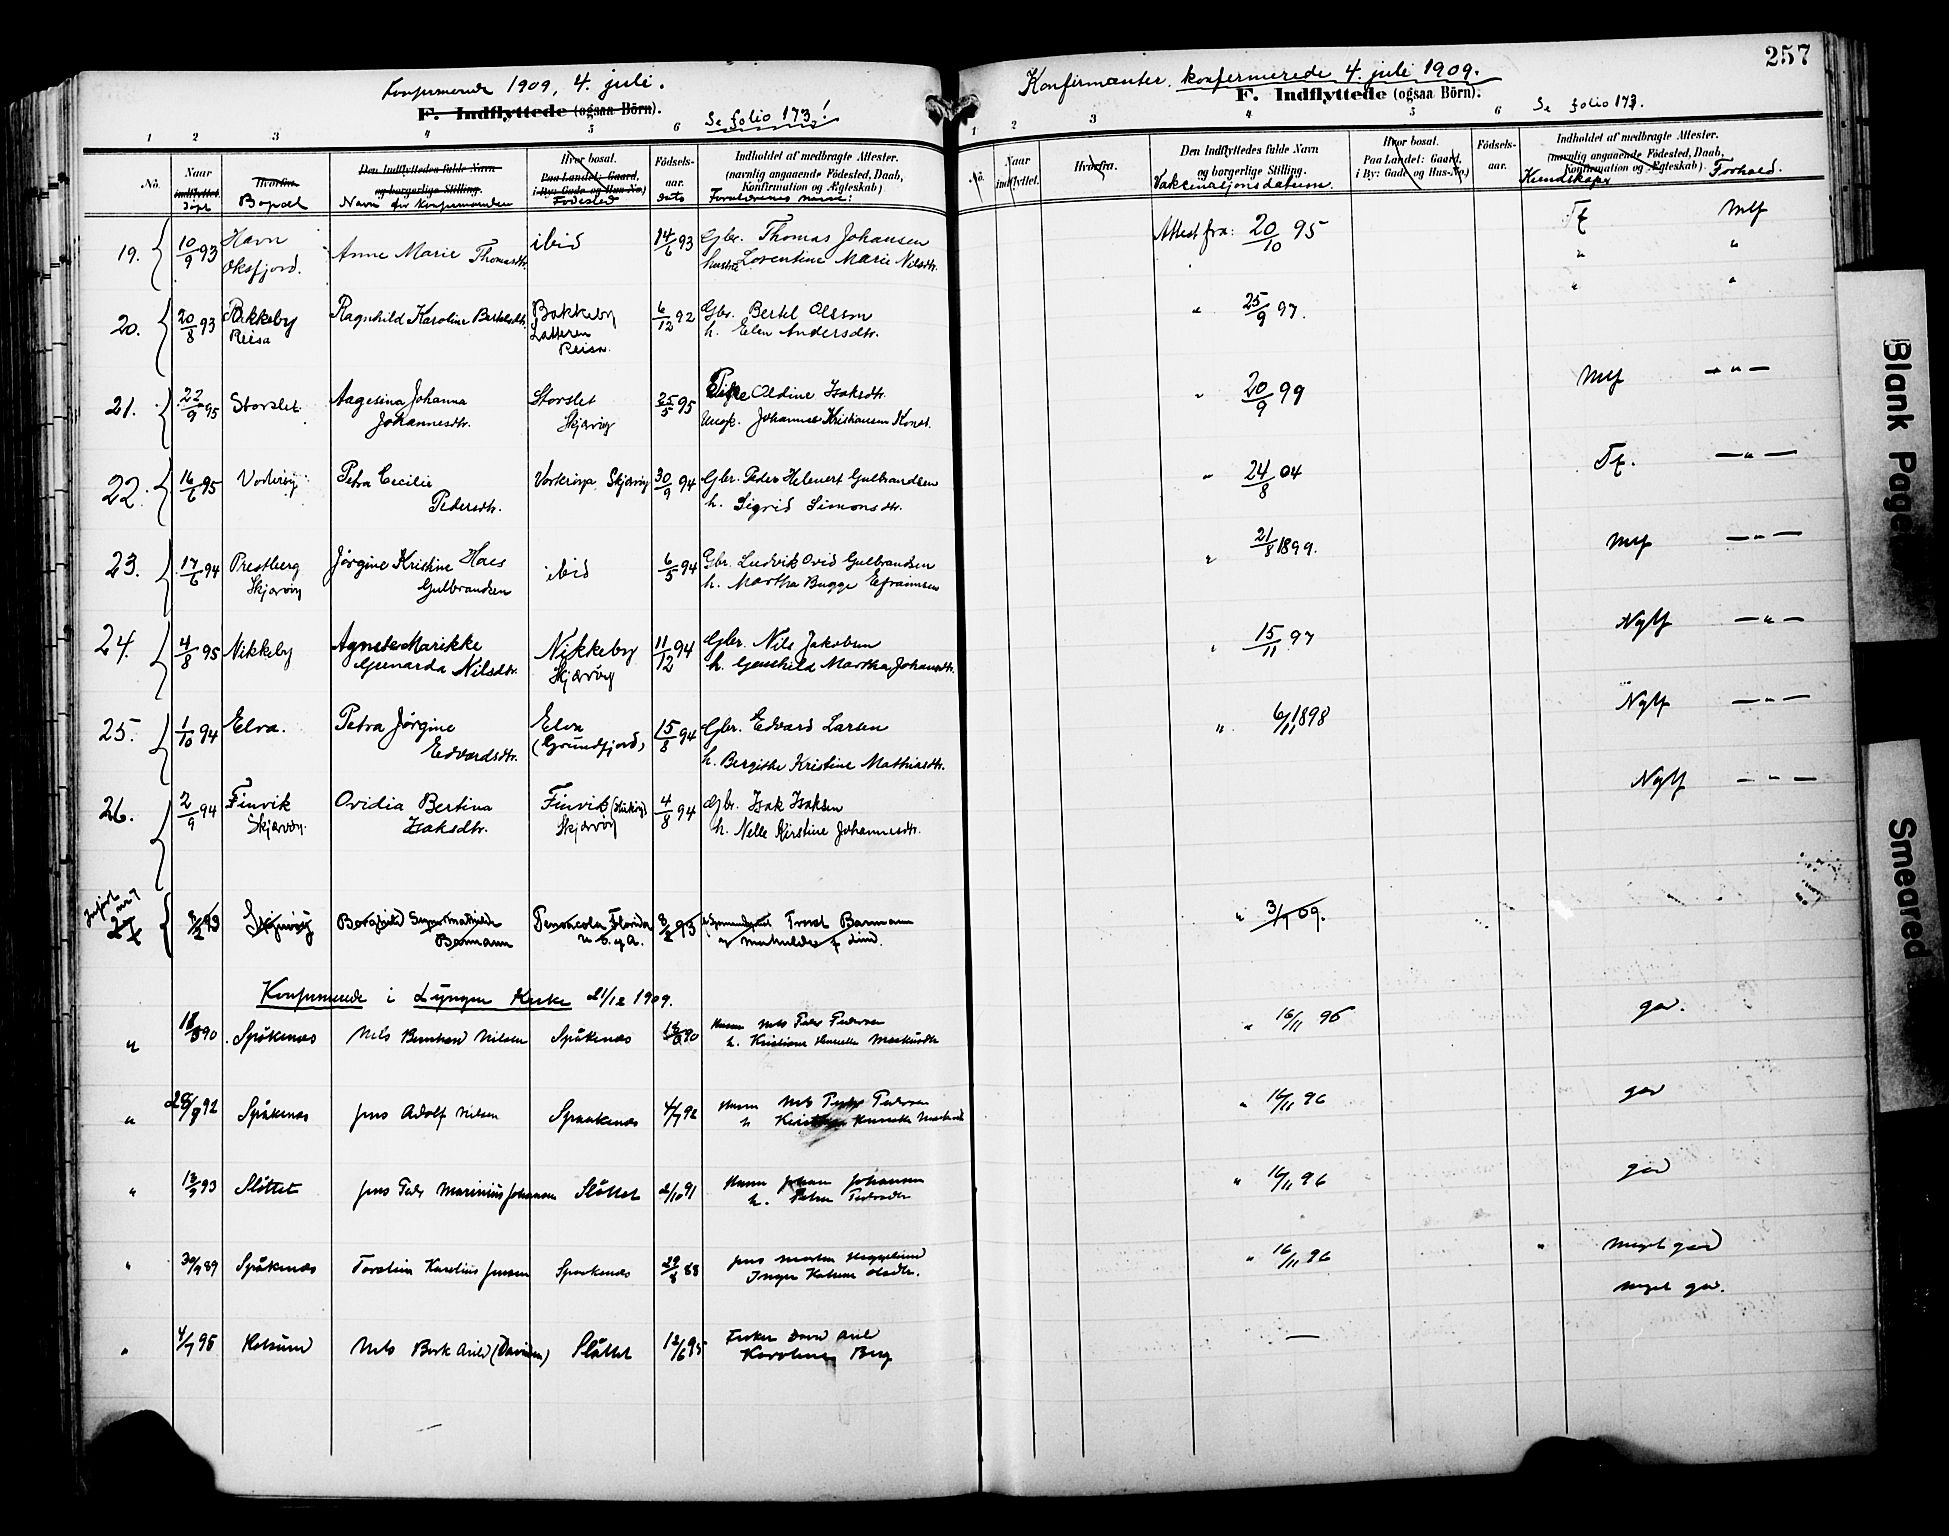 Konfirmerede 1909, 4. juli.
F. Indflyttede (ogsaa Börn).
Se folio 173!
1 2 3 4 5 6
No. Naar indflyttet. Hvorfra. Den Indflyttedes fulde Navn og borgerlige Stilling. Hvor bosat. Paa Landet: Gaard, i By: Gade og Hus-No.) Födsels-aar. Indholdet af medbragte Attester. (navnlig angaaende Födested, Daab, Konfirmation og Ægteskab)
Döpt Bopæl Navn for konfirmanden Födested dato Forældrenes navne:
19. 10/9 93 Havn Oksfjord. Anne Marie Thomasdtr. ibid 14/6 93 Gbr. Thomas Johansen
hustru Lorentine Marie Nilsdtr.
20. 20/8 93 Bakkeby Reisa Ragnhild Karoline Bertelsdtr. Bakkeby Reisa. 6/12 92 Gbr. Bertel Olsen
h. Elen Andersdtr.
21. 22/9 95 Storslet. Aagesina Johanna Johannesdtr. Storslet Skjærvøy 25/5 95 Pike Oldine Isaksdtr.
Ungk. Johannes Kristiansen
22. 16/6 95 Vorterøy Petra Cecilie Pedersdtr. Vorterøya, Skjærvøy 30/9 94 Gbr. Peder Helmert Gulbrandsen
h. Sigrid Simonsdtr.
23. 17/6 94 Prestberg Skjærvöy Jørgine Kristine Haes Gulbrandsen ibid 6/5 94 Gbr. Ludvik Ovid Gulbrandsen
h. Martha Bugge Efraimsen
24. 4/8 95 Nikkeby Agnete Marikke Gunarda Nilsdtr. Nikkeby Skjærvöy 11/12 94 Gbr. Nils Jakobsen
h. Gunhild Martha Johansdtr.
25. 1/10 94 Elva. Petra Jørgine Edvardsdtr. Elva (Grundfjord) 15/8 94 Gbr. Edvard Larsen
h. Bergithe Kristine Mathiasdtr.
26. 2/9 94 Finvik Skjærvöy. Ovidia Bertina Isaksdtr. Finvik Skjærvöy 4/8 94 Gbr. Isak Isaksen
h. Nelle Kirstine Johannesdtr.
27 /2 93 Skjærvöy Borghild Signe Mathilde Barmann Pensacola Florida U.S.A. 3/2 93 Trost Barmann
og Mathilde f. Lund.
Konfirmerede i Lyngen Kirke 21/12 1909.
" 90 Spåkenæs Nils Bernhard Nilsen Spåkenæs 90 Mann Nils Peder Pedersen
h. Kristiane Henrikke Markusdtr
" 92 Spåkenæs Jens Adolf Nilsen Spaakenæs 4/7 92 Mann Nils Peder Pedersen
h Henrikke
" 93 Slåttet Jens Peder Marinius Johansen Slåttet 2/10 91 Mann Johan Johansen
h. Petra Pedersdtr
" 30/9 89 Spåkenæs Karelius Jensen Spaakenæs 29/8 88 Jens Morten Heggelund
Inger Katrine Olsdtr.
" 4/7 95 Kolsund Nils Berk Arild (Davidsen) Slåttet 12/6 95 Fisker David Arild
Karoline Berg
257
Konfirmanter konfermerede 4. juli 1909.
F. Indflyttede (ogsaa Börn).
Se folio 173.
1 2 3 4 5 6
No. Naar indflyttet. Hvorfra. Den Indflyttedes fulde Navn og borgerlige Stilling. Hvor bosat. Paa Landet: Gaard, i By: Gade og Hus-No.) Födsels-aar. Indholdet af medbragte Attester. (navnlig angaaende Födested, Daab, Konfirmation og Ægteskab)
Vakcinasjonsdatum Kundskaper Forhold.
Attest fra: 20/10 95 Tf Mlf
" "
" "
" 25/9 97.
" 20/9 99 Mlf — " —
" 24/8 04 Tf. — " —
" 21/8 1899. Mlf — " —
" 15/11 97 Nglf — " —
" 6/11 1898 Nglf — " —
Nglf — " —
" 3/7 09.
" 16/11 96 god.
" 16/11 96 god
" 16/11 96 god
" 16/11 96 " meget god
— meget god.
Blank Page
Smeared